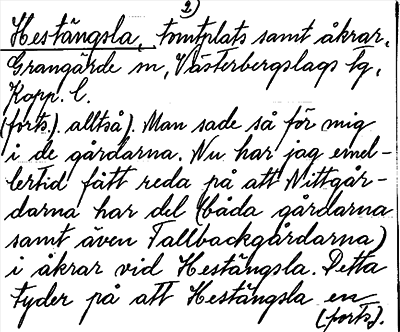 2)
Hestängsla, tomtplats samt åkrar,
Grangärde sn, Västerbergslags tg,
Kopp. l.
(forts.). alltså). Man sade så för mig
i de gårdarna. Nu har jag emel-
lertid fått reda på att Nittgår-
darna har del (båda gårdarna
samt även Tallbackgårdarna)
i åkrar vid Hestängsla. Detta
tyder på att Hestängsla en
(forts).